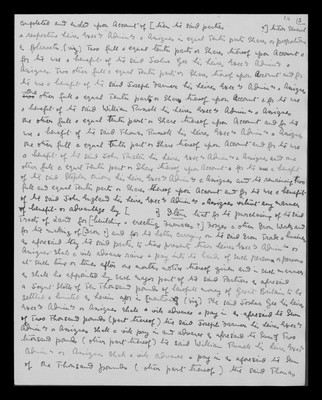 13
completed and held upon Account of [then the said parties ] their several
& respective heirs Exec's Admin's & Assigns in equal Tenth parts Shares or proportions
as followeth (viz) Two full & equal Tenth parts or Shares thereof upon Account &
for the use & benefit of the said Joshua Gee his heirs Exec's Admin's &
Assigns Two other full & equal Tenth parts or Shares thereof upon Account and for
the use & benefit of the said Joseph Farmer his heirs Exec's Admin's & Assigns
other full & equal Tenth parts or Shares thereof upon Account & for the use
& benefit of the said William Russell his heirs Exec's Admin's & Assigns
one other full & equal Tenth part or Share thereof upon Account and for the
use & benefit of the said Thomas Russell his heirs Exec's Admin's & Assigns
one other full & equal Tenth part or Share thereof upon Account and for the use
& benefit of the said John Ruston his heirs Exec's Admin's & Assigns and one
other full & equal Tenth part or Share thereof upon Account & for the use & benefit
of the said Stephen his heirs Exec's Admin's & Assigns and the remaining
full and equal Tenth parts or Share thereof upon Account and for the use & benefit
of the said John England his heirs Exec's Admin's & Assigns without any manner
of benefit or advantage by [ ] that for the purchasing of the said
Tracts of Land for [building & erecting Furnaces] Forges & other Iron Works and
for the making of [Iron] and for the better carrying on the said Iron Trade & business
as aforesaid they the said parties to these presents their heirs Exec's Admin's or
Assigns shall & will advance raise & pay into the hands of such person or persons
at such time or times after one months notice thereof given and in such manner
as shall be appointed by such major part of the said Parties as aforesaid
a Sum of Ten Thousand pounds of lawfull money of Great Britain to be
settled & limited as herein after is mentioned (viz) The said Joshua Gee his heirs
Exec's Admin's or Assigns shall & will advance & pay in as aforesaid the Sum
of Two Thousand pounds (part thereof) the said Joseph Farmer his heirs Exec's
Admin's or Assigns shall & will pay in and advance as aforesaid the Sum of Two
thousand pounds (other part thereof) the said William Russell his heirs Exec's
Admin's or Assigns shall & will advance & pay in as aforesaid the Sum
of One Thousand pounds (other part thereof) the said Thomas